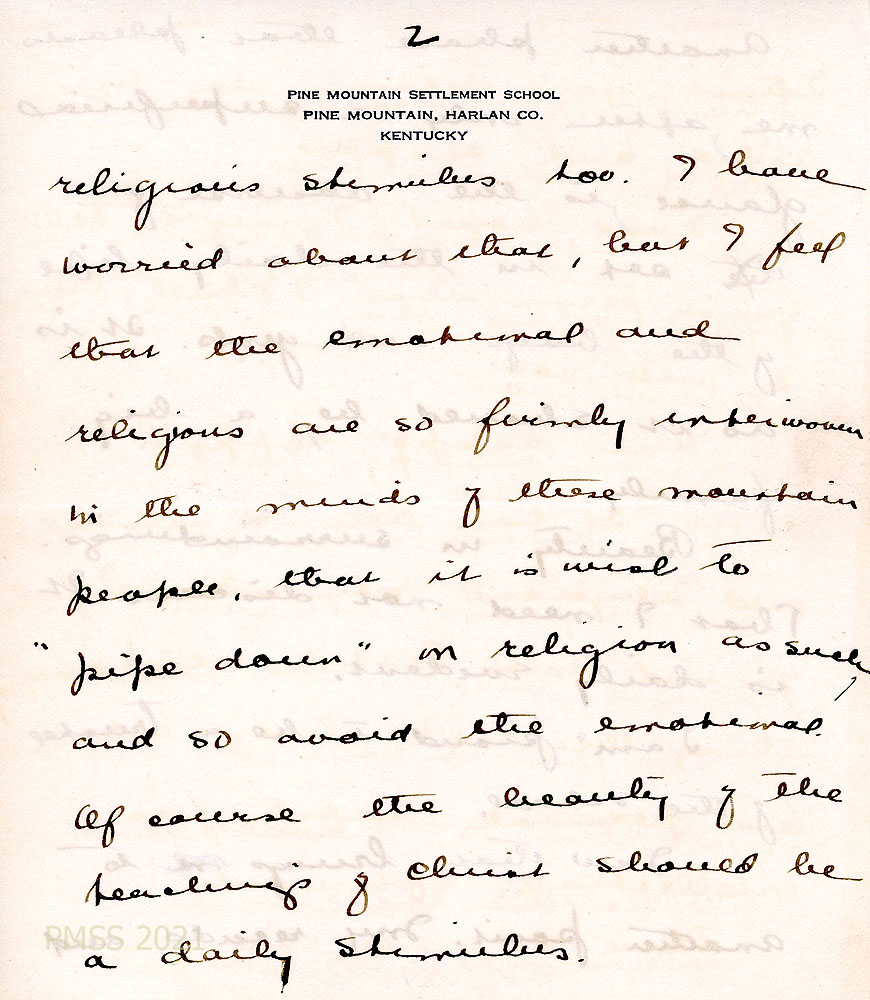 2
PINE MOUNTAIN SETTLEMENT SCHOOL
PINE MOUNTAIN, HARLAN CO.
KENTUCKY
religious stimulus too. I have
worried about that, but I feel
that the emotional and
religious are so firmly interwoven
in the minds of these mountain
people, that it is wise to
"pipe down" on religion as such,
and so avoid the emotional.
Of course the beauty of the
teachings of Christ should be
a daily stimulus.
PMSS 2021